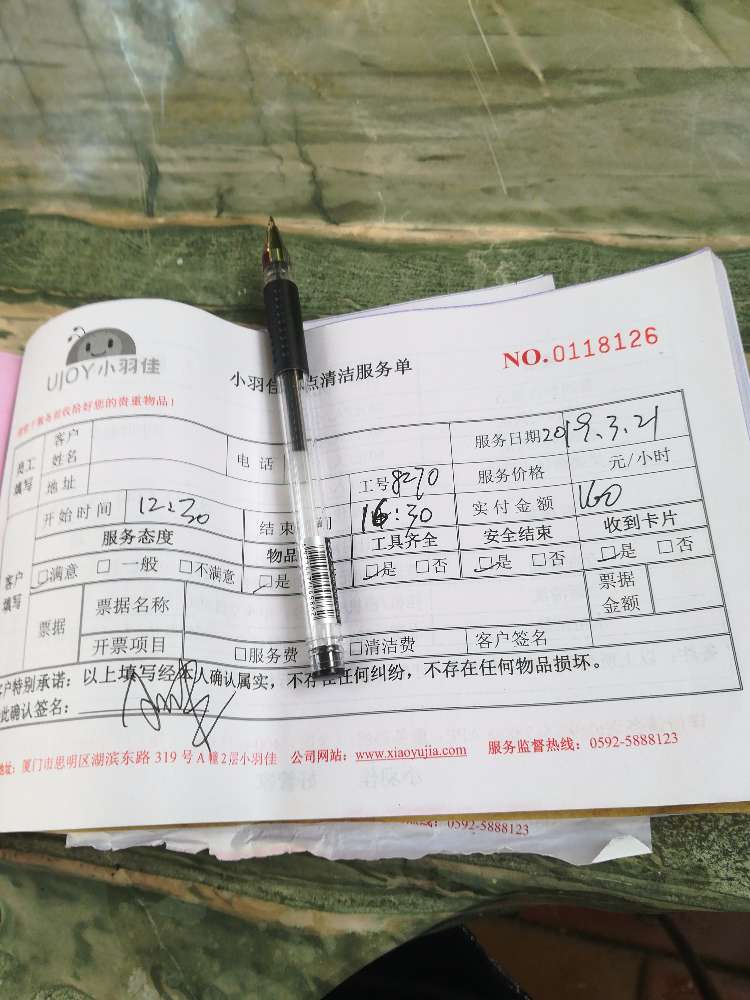 UJOY小羽佳
小羽佳 点清洁服务单
NO.0118126
收拾好您的贵重物品!
员工填写 客户姓名 电话 服务日期2019.3.21
地址 工号8270 服务价格 元/小时
开始时间 12:30 结束 间 16:30 实付金额 160
客户填写 服务态度 物品 工具齐全 安全结束 收到卡片
□满意 □一般 □不满意 □是 □是 □否 □是 □否 □是 □否
票据 票据名称 票据金额
开票项目 □服务费 □清洁费 客户签名
客户特别承诺:以上填写经本人确认属实,不存在任何纠纷,不存在任何物品损坏。
此确认签名:
地址:厦门市思明区湖滨东路 319 号 A 幢 2 层小羽佳 公司网站:www.xiaoyujia.com 服务监督热线:0592-5888123
热线:0592-5888123